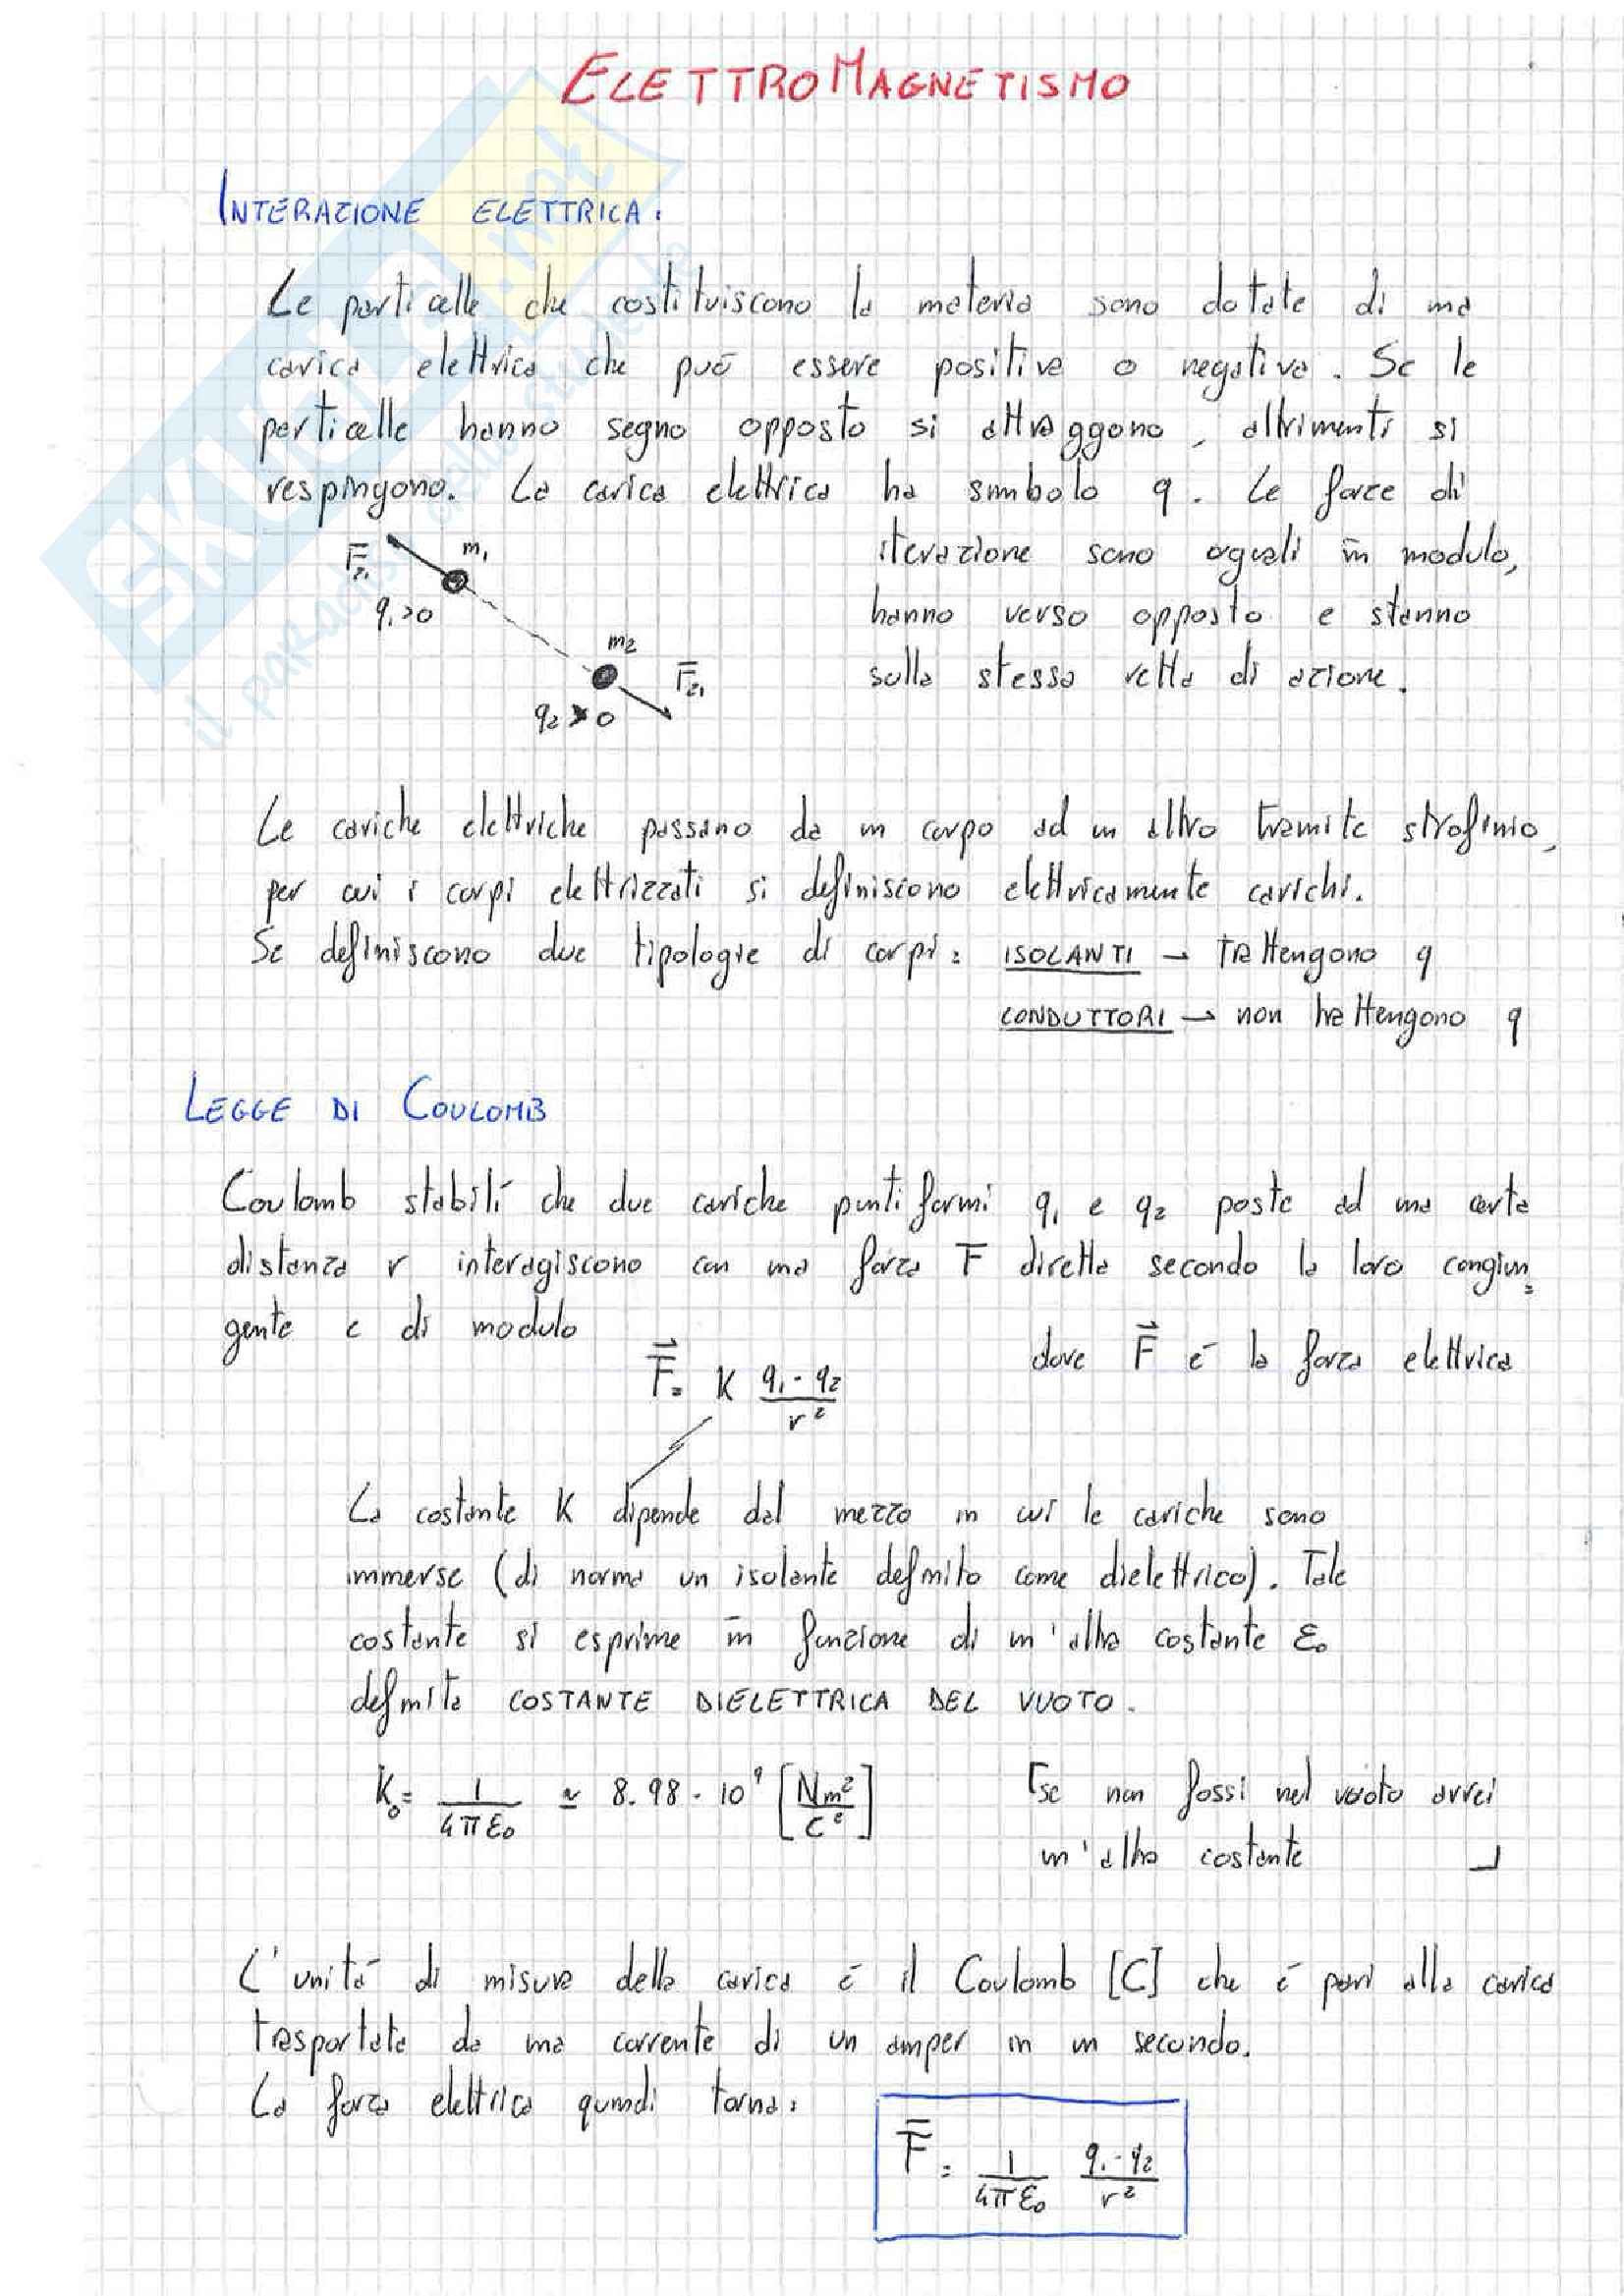 ELETTROMAGNETISMO
INTERAZIONE ELETTRICA:
Le particelle che costituiscono la materia sono dotate di una
carica elettrica che può essere positiva o negativa. Se le
particelle hanno segno opposto si attraggono, altrimenti si
respingono. La carica elettrica ha simbolo q. Le forze di
iterazione sono uguali in modulo,
hanno verso opposto e stanno
sulla stessa retta di azione.
F̅₂₁ m₁
q₁>0
m₂
F̅₂₁
q₂>0
Le cariche elettriche passano da un corpo ad un altro tramite strofinio,
per cui i corpi elettrizzati si definiscono elettricamente carichi.
Se definiscono due tipologie di corpi: ISOLANTI → trattengono q
CONDUTTORI → non trattengono q
LEGGE DI COULOMB
Coulomb stabilì che due cariche puntiformi q₁ e q₂ poste ad una certa
distanza r interagiscono con una forza F diretta secondo la loro congiun=
gente e di modulo
F = K q₁·q₂ / r²
dove F⃗ è la forza elettrica
La costante K dipende dal mezzo in cui le cariche sono
immerse (di norma un isolante definito come dielettrico). Tale
costante si esprime in funzione di un'altra costante ε₀
definita COSTANTE DIELETTRICA DEL VUOTO.
K₀ = 1 / 4πε₀ ≃ 8.98 · 10⁹ [Nm² / C²]
[se non fossi nel vuoto avrei
un'altra costante ]
L'unità di misura della carica è il Coulomb [C] che è pari alla carica
trasportata da una corrente di un amper in un secondo.
La forza elettrica quindi torna:
F̅ = 1 / 4πε₀ q₁·q₂ / r²
SKUOLA.net
il paradiso dello studente